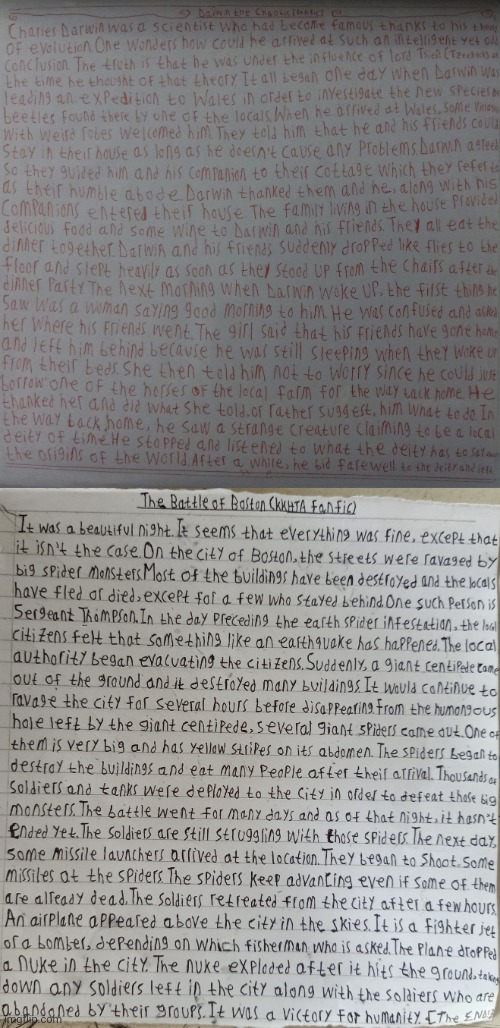 Darwin the
Charles Darwin was a scientist who had become famous thanks to his
of evolution.One wonders how could he arrived at such an intelligent yet odd
conclusion.The truth is that he was under the influence of lord
the time he thought of that theory.It all began one day when Darwin was
leading an expedition to Wales in order to investigate the new species
beetles found there by one of the locals.When he arrived at Wales, some
with weird robes welcomed him.They told him that he and his friends could
stay in their house as long as he doesn't cause any problems.Darwin agreed
so they guided him and his companion to their cottage which they refer to
as their humble abode.Darwin thanked them and he, along with his
companions entered their house.The family living in the house provided
delicious food and some wine to Darwin and his friends.They all eat the
dinner together.Darwin and his friends suddenly dropped like flies to the
floor and slept heavily as soon as they stood up from the chairs after the
dinner party.The next morning when Darwin woke up, the first thing he
saw was a woman saying good morning to him.He was confused and asked
her where his friends went.The girl said that his friends have gone home
and left him behind because he was still sleeping when they woke up
from their beds.She then told him not to worry since he could just
borrow one of the horses of the local farm for the way back home.He
thanked her and did what she told,or rather suggest, him what to do.In
the way back home, he saw a strange creature claiming to be a local
deity of time.He stopped and listened to what the deity has to say
the origins of the world.After a while, he bid farewell to the deity and
The Battle of Boston (KKHTA fanfic)
It was a beautiful night.It seems that everything was fine, except that
it isn't the case.On the city of Boston,the streets were ravaged by
big spider monsters.Most of the buildings have been destroyed and the locals
have fled or died,except for a few who stayed behind.One such person is
Sergeant Thompson.In the day preceding the earth spider infestation, the local
citizens felt that something like an earthquake has happened.The local
authority began evacuating the citizens.Suddenly, a giant centipede came
out of the ground and it destroyed many buildings.It would continue to
ravage the city for several hours before disappearing.From the humongous
hole left by the giant centipede, several giant spiders came out.One of
them is very big and has yellow stripes on its abdomen.The spiders began to
destroy the buildings and eat many people after their arrival.Thousands of
soldiers and tanks were deployed to the city in order to defeat those big
monsters.The battle went for many days and as of that night, it hasn't
ended yet.The soldiers are still struggling with those spiders.The next day,
some missile launchers arrived at the location.They began to shoot some
missiles at the spiders.The spiders keep advancing even if some of them
are already dead.The soldiers retreated from the city after a few hours.
An airplane appeared above the city in the skies.It is a fighter jet
or a bomber, depending on which fisherman who is asked.The plane dropped
a nuke in the city. The nuke exploded after it hits the ground, taking
down any soldiers left in the city along with the soldiers who are
abandoned by their groups.It was a victory for humanity. [The End]
imgflip.com